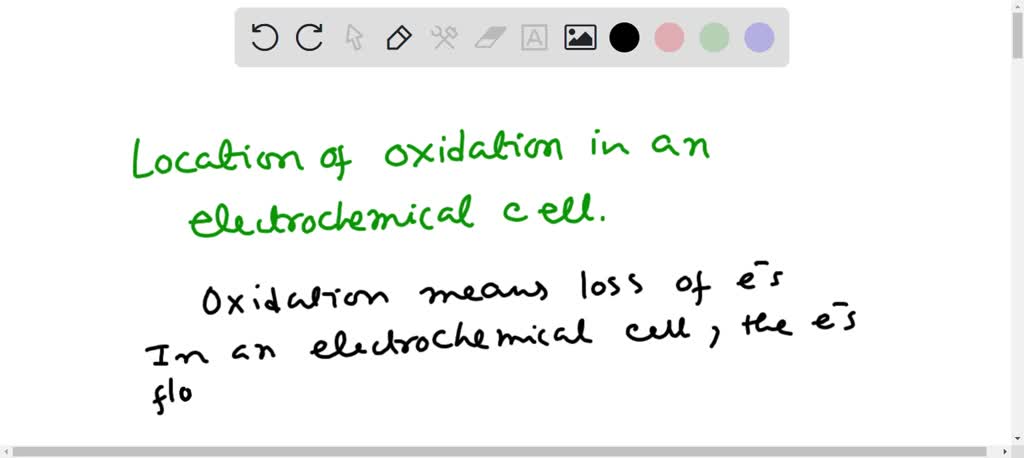 A
Location of oxidation in an
electrochemical cell.
Oxidation means loss of e⁻s
In an electrochemical cell, the e⁻s
flo